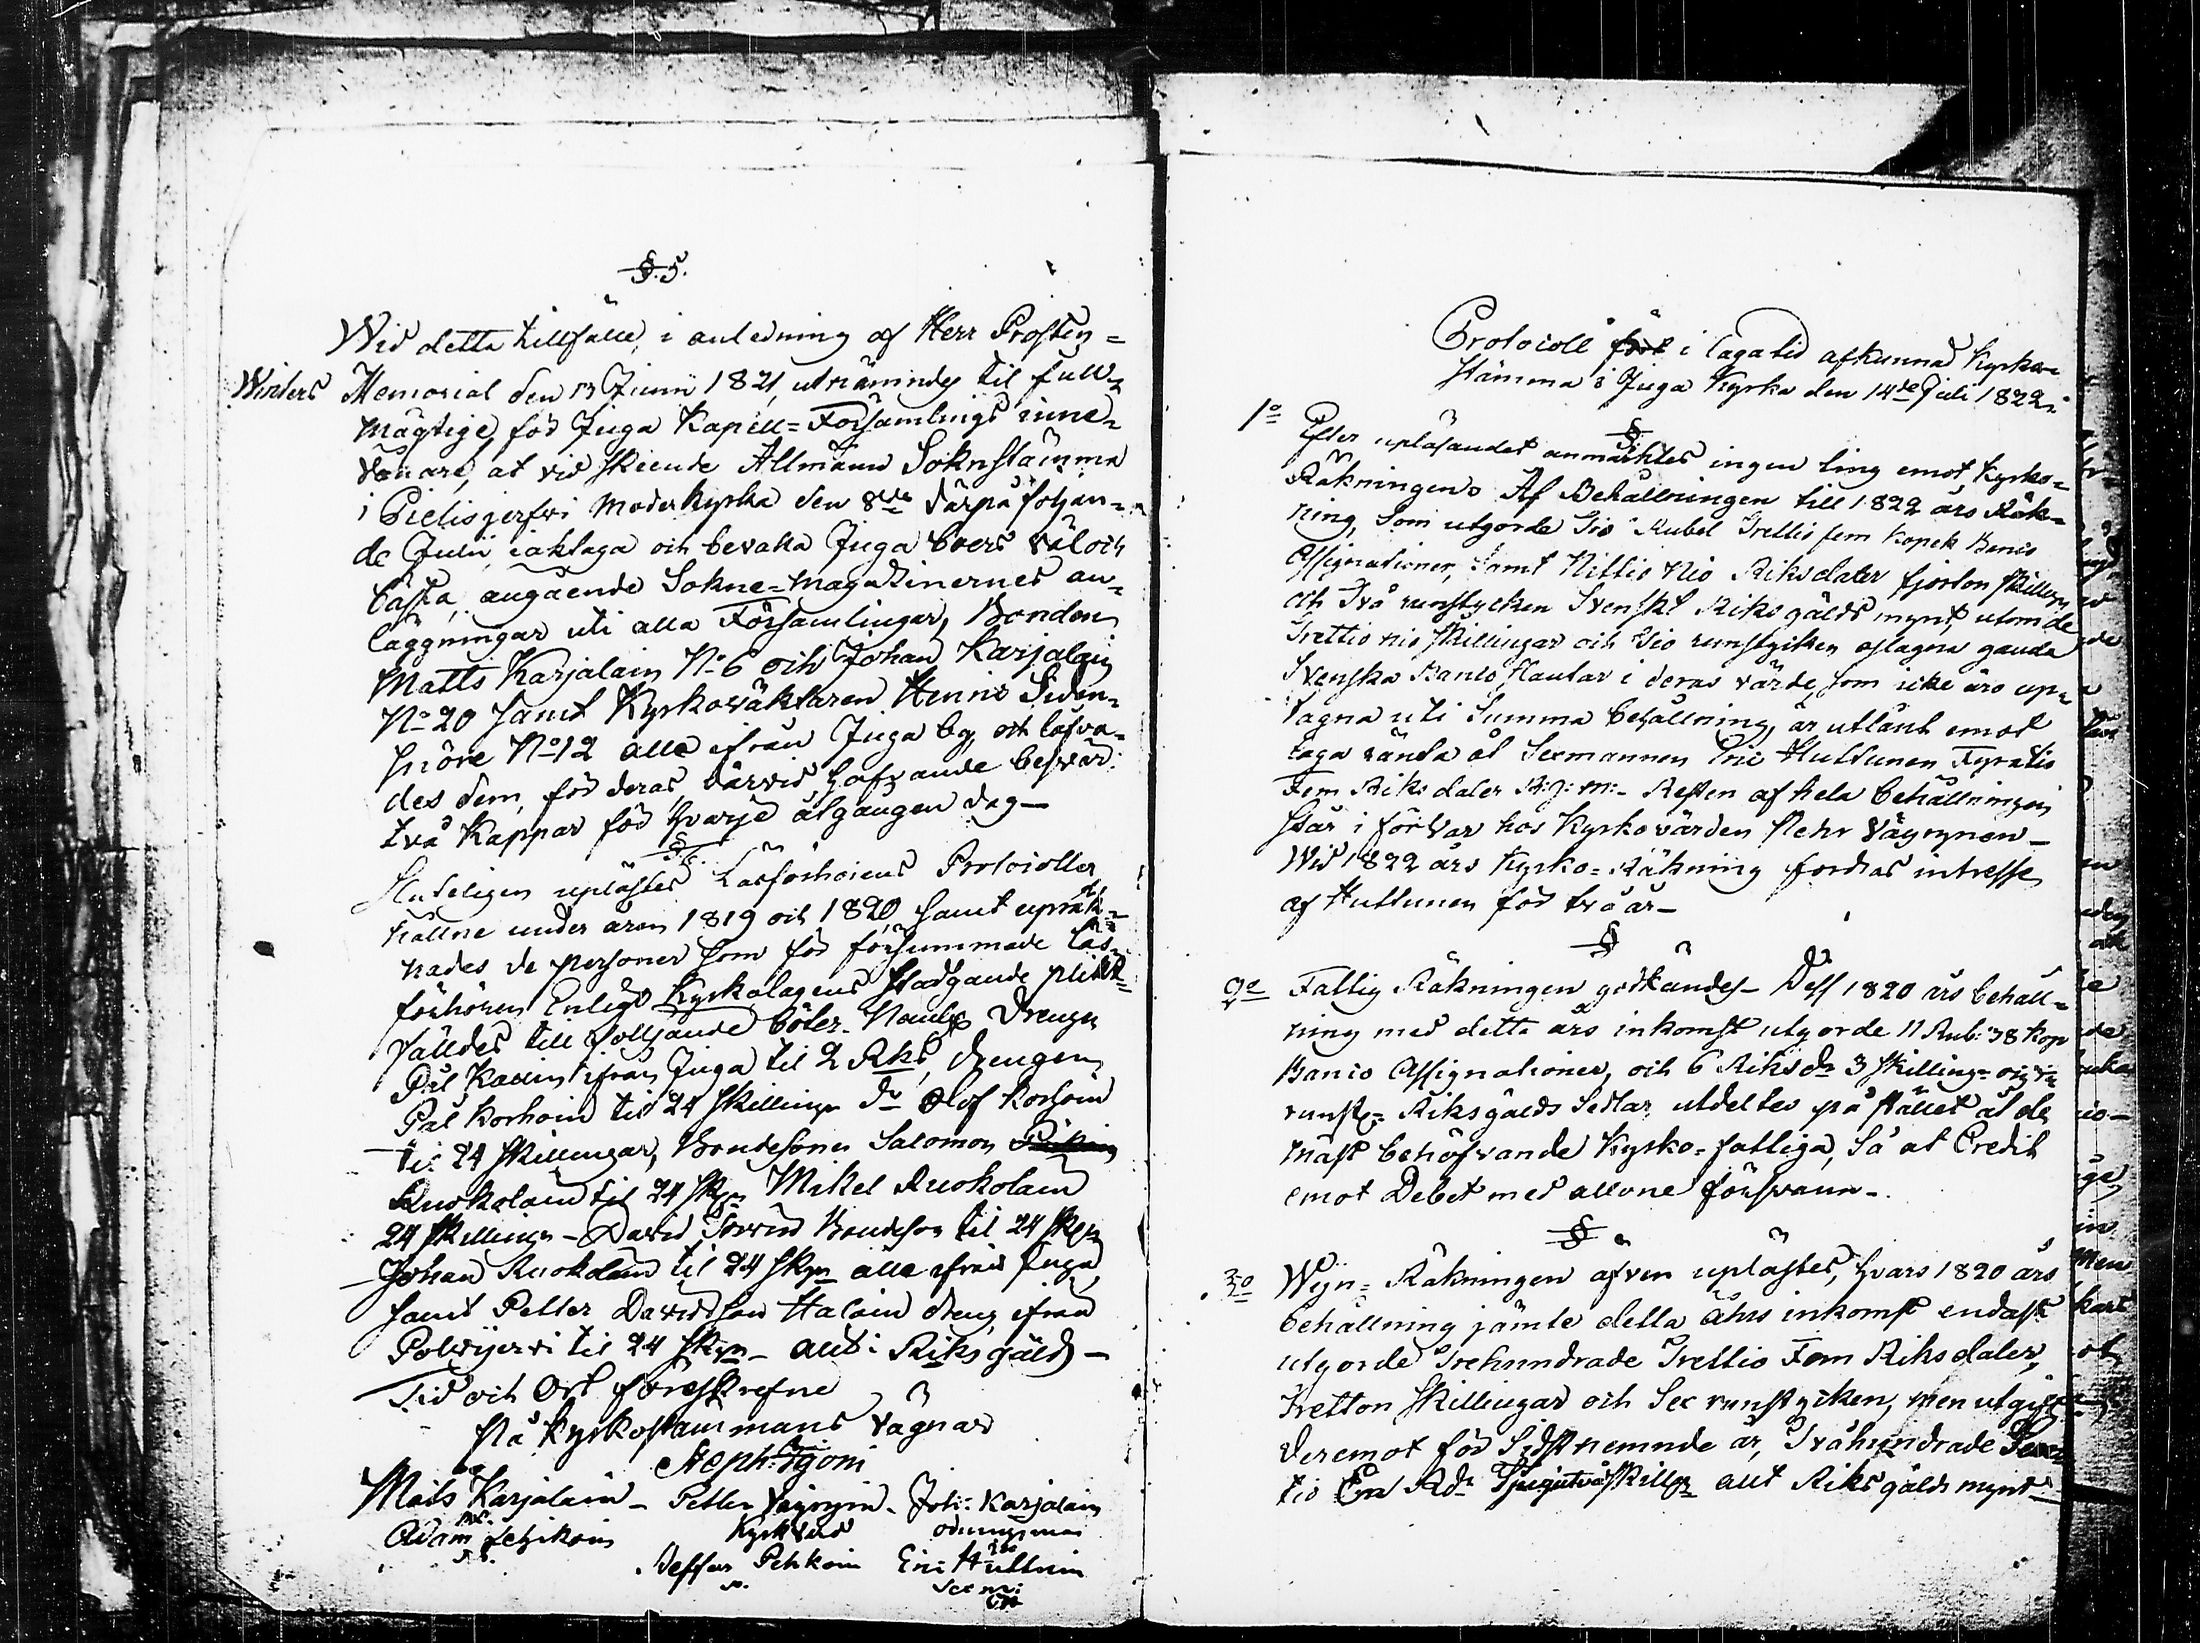 §. 5.
Wid detta tillfälle, i anledning af Herr Prosten-
Winters Memorial den 13 Junii 1821, utnämndes til full-
mägtige för Juga Kapell-Församlings inne-
vånare, at vid skeende Allmänn Soknstämma
i Pielisjerfvi Moderkyrka den 8de därpå följan-
de Julii iakttaga och bevaka Juga boers väl och
bästa, angående Sokne-Magazinernes an-
läggningar uti alla Församlingar, Bonden
Matts Karjalain No 6 och Johan Karjalain
No 20 samt Kyrkoväktaren Henric Siden-
snöre No 12 alla ifrån Juga by, och låfva-
des dem, för deras därvid hafvande besvär
två Kappar för hvarje åtgången dag—
§ 6.
Sluteligen uplästes Läsförhörens Protocoller
hållne under åren 1819 och 1820, samt upräk-
nades de personer som för försummade läs-
förhören Enligt Kyrkolagens stadgande plikt-
fälldes till följande böter. Nämligen Drengen
Pål ifrån Juga til 2 Rks, drengen
Pål Korhoin til 24 skillingar Do Olof Korhoin
til 24 skillingar, Bondesonen Salomon
Ruokolain til 24 skgr Mikel Ruokolain
24 skillingr — David Bondeson til 24 skgr
Johan Ruokolain til 24 skgr alla ifrån Juga,
samt Petter Davidson Halain dreng ifrån
Polvijervi til 24 skgr — allt i Riksgäld —
Tid och Ort föreskrefne
På Kyrkostämmans vägnar
Steph:
Mats Karjalain — Petter Väyrynen. Joh: Karjalain
Kyrkvärd
Adam Letzikoin
Pehkoin Eric Huttuin
Sexm:
Protocoll fördt i laga tid afkunnad Kyrko-
stämma i Juga Kyrka den 14de Julii 1822.
§
1o Efter upläsandet anmärktes ingen ting emot Kyrko-
Räkningen. Af Behållningen till 1822 års Räk-
ning, som utgorde Tio Rubel Trettio fem Kopek Banco
Assignationer, samt Nittio Nio Riksdaler fjorton skillingar
och Två runstycken Svenskt Riksgälds mynt, utom de
Trettio nio skillingar och Tio runstycken aflagna gamla
Svenska Banco slantar i deras värde, som icke äro up-
tagna uti Summa behållning, är utlånt emot
laga ränta åt Sexmannen Eric Huttunen Fyratio
Fem Riksdaler R:g:m:- Resten af hela behållningen
står i förvar hos Kyrkovärden Pehr Väyrynen —
Wid 1822 års Kyrko-Räkning fordras intresse
af Huttunen för två år —
§
2o Fattig Räkningen godkändes — Dess 1820 års behåll-
ning med detta års inkomst utgorde 11 Rub: 38 kop
Banco Assignationer, och 6 Riksdr 3 skilling- och
runst:- Riksgälds Sedlar utdeltes på stället åt de
mäst behöfvande Kyrko-fattiga, så at Credit
emot Debet med allone försvann —
§
3o Wijn-Räkningen äfven uplästes, hvars 1820 års
behållning jämte detta åhrs inkomst endast
utgorde Trehundrade Trettio Fem Riksdaler,
Tretton skillingar och Sex runstycken, men utgift
deremot för Sidstnemnde år, Tvåhundrade
tio En Rdr Tjugutvå skillgr allt Riksgälds mynt —